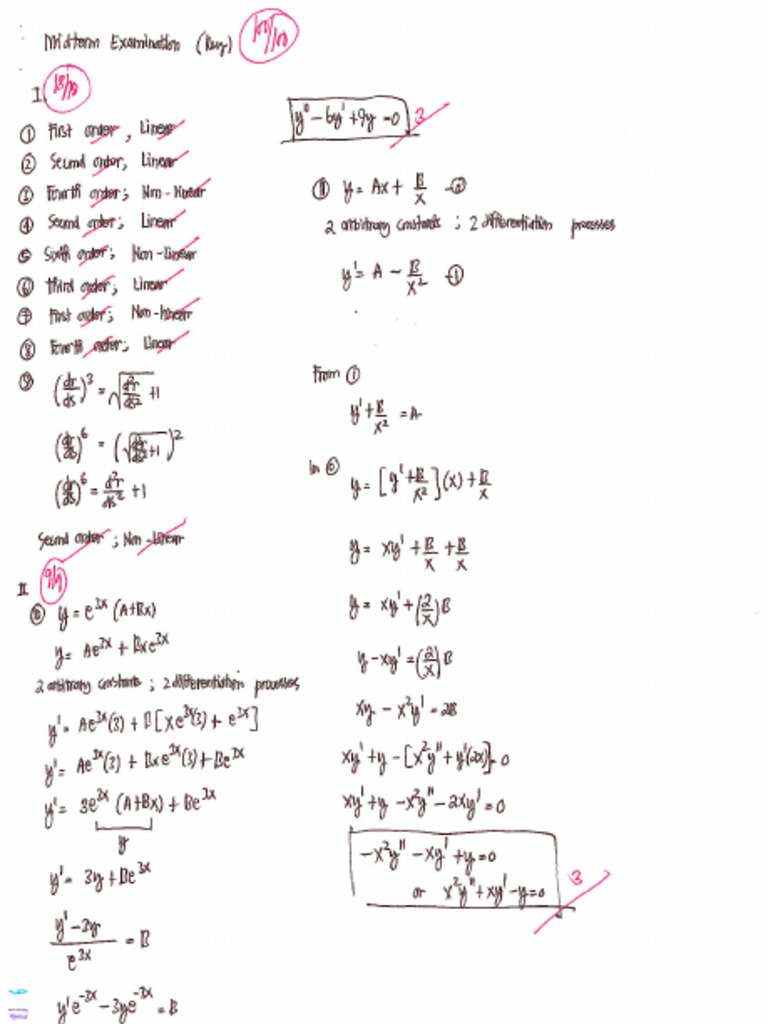 Midterm Examination (Key) 100/100
I. 18/18
① First order, Linear
② Second order, Linear
③ Fourth order; Non-Linear
④ Second order; Linear
⑤ Sixth order; Non-Linear
⑥ Third order; Linear
⑦ First order; Non-Linear
⑧ Fourth order; Linear
⑨ (dr/ds)³ = √(d²r/ds² + 1)
(dr/ds)⁶ = (√(d²r/ds² + 1))²
(dr/ds)⁶ = d²r/ds² + 1
Second order; Non-Linear
II. 9/9
⑩ y = e³ˣ (A+Bx)
y = Ae³ˣ + Bxe³ˣ
2 arbitrary constants; 2 differentiation processes
y' = Ae³ˣ(3) + B[xe³ˣ(3) + e³ˣ]
y' = Ae³ˣ(3) + Bxe³ˣ(3) + Be³ˣ
y' = 3e³ˣ (A+Bx) + Be³ˣ
y
y' = 3y + Be³ˣ
(y' - 3y)/e³ˣ = B
y'e⁻³ˣ - 3ye⁻³ˣ = B
y'' - 6y' + 9y = 0 3
⑪ y = Ax + B/x -②
2 arbitrary constants; 2 differentiation processes
y' = A - B/x² -①
From ①
y' + B/x² = A
In ②
y = [y' + B/x²](x) + B/x
y = xy' + B/x + B/x
y = xy' + (2/x)B
y - xy' = (2/x)B
xy - x²y' = 2B
xy' + y - [x²y'' + y'(2x)] = 0
xy' + y - x²y'' - 2xy' = 0
-x²y'' - xy' + y = 0
or x²y'' + xy' - y = 0 3